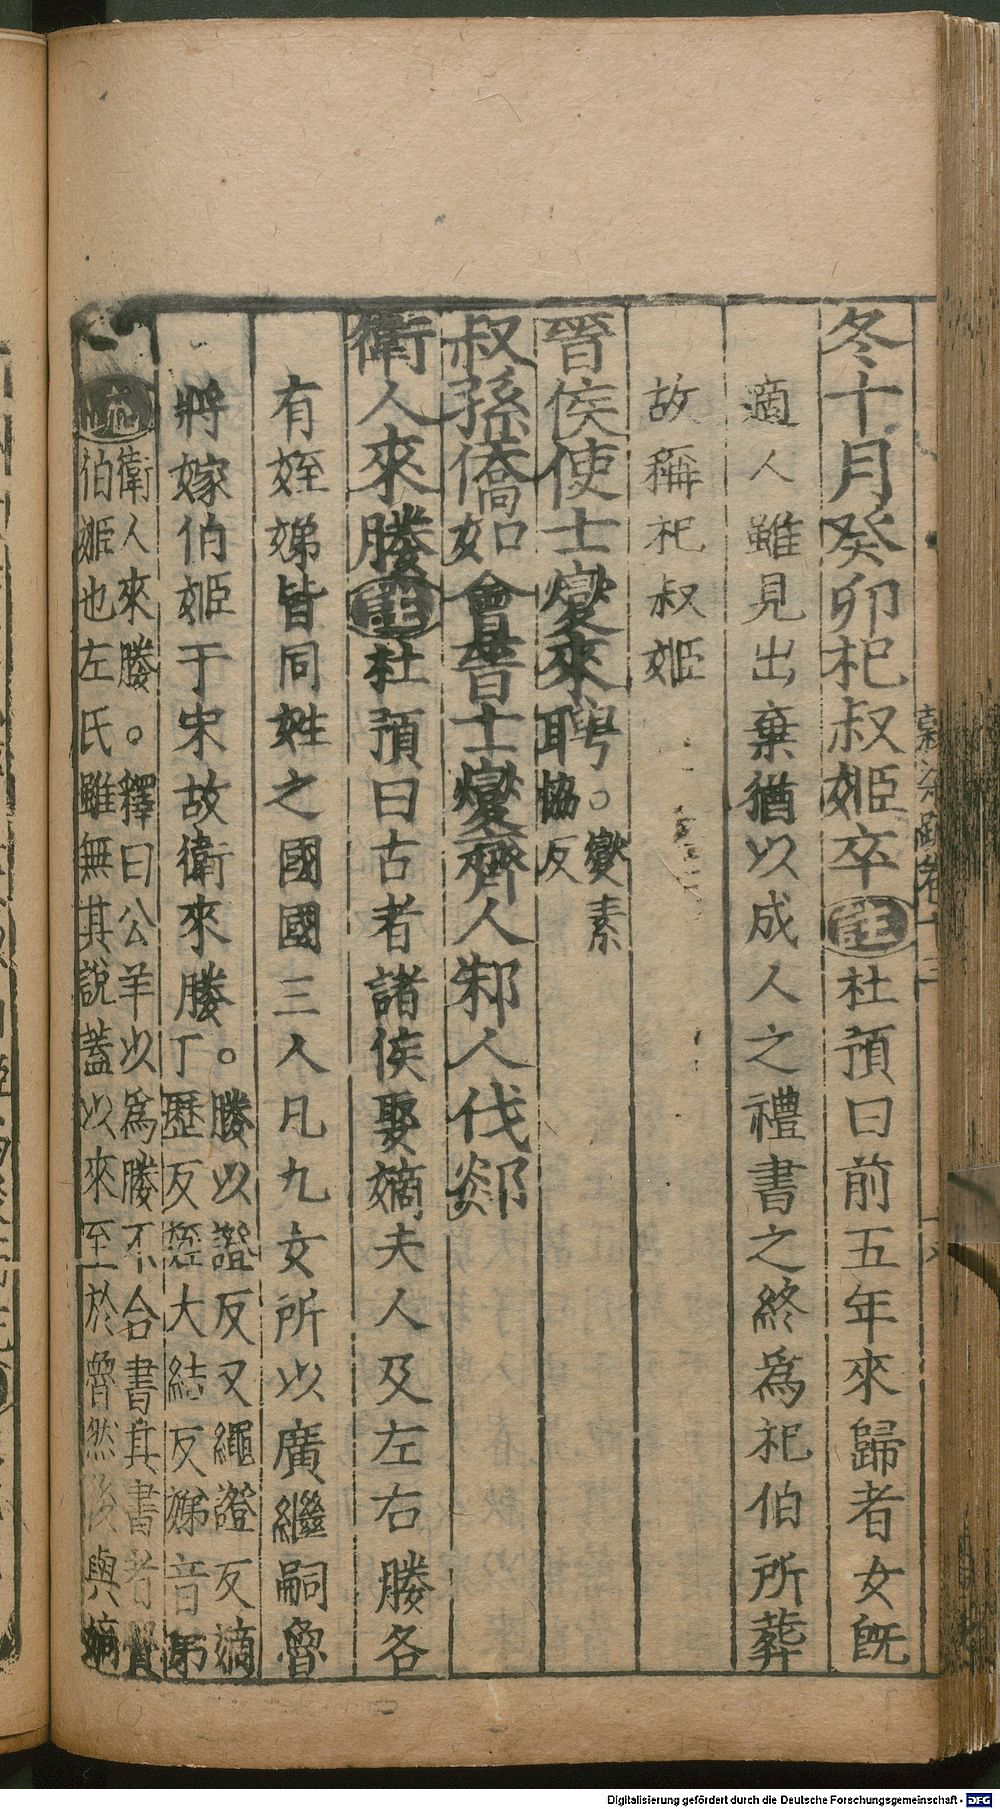 冬十月癸卯杞叔姬卒註杜預曰前五年來歸者女旣
適人雖見出棄猶以成人之禮書之終爲杞伯所葬
故稱杞叔姬
晉侯使士燮來聘。燮素協反
叔孫僑如會晉士燮齊人邾人伐郯
衛人來媵註杜預曰古者諸侯娶嫡夫人及左右媵各
有姪娣皆同姓之國國三人凡九女所以廣繼嗣魯
將嫁伯姬于宋故衛來媵。媵以證反又繩證反嫡丁歷反姪大結反娣音弟
疏衛人來媵。釋曰公羊以爲媵不合書其書者賢
伯姬也左氏雖無其說蓋以來至於魯然後與嫡
Digitalisierung gefördert durch die Deutsche Forschungsgemeinschaft - DFG